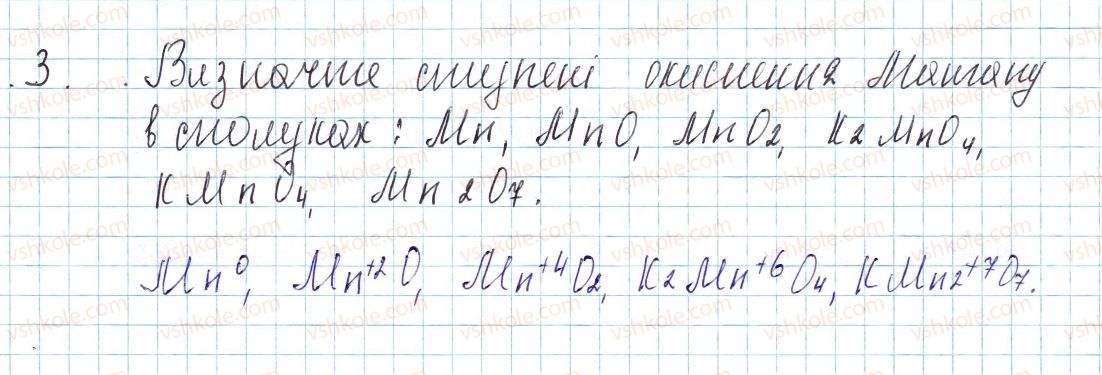 3. Визначте ступені окиснення Мангану
в сполуках: Mn, MnO, MnO2, K2MnO4,
KMnO4, Mn2O7.
Mn⁰, Mn⁺²O, Mn⁺⁴O2, K2Mn⁺⁶O4, KMn2⁺⁷O7.